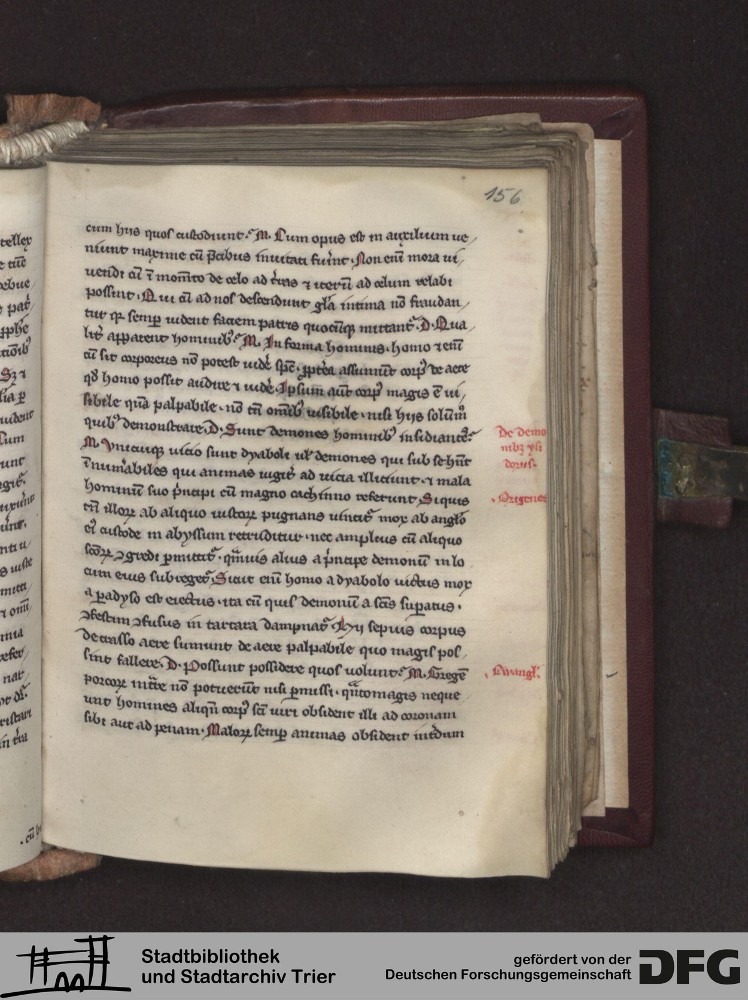 156
cum hiis quos custodiunt. M. Cum opus est in auxilium ue
niunt maxime cū p̄cibus inuitati fuīnt. Non enī mora ui
uendi cū ī momēto de celo ad t̄ras ⁊ iterū ad celum relabi
possint. Qui cū ad nos descendunt gl̄a intima nō fraudan
tur qr semp̄ uident faciem patris quocūq mittant᷑. D. Qua
lit̄ apparent hominib᷒. M. In forma hominis. homo ⁊enī
cū sit corporeus nō potest uidē sp̄c. ꝓpt̄ea assumūt corp᷒ de aere
qd̄ homo possit audire ⁊ uidē. Ipsum aut̄ corp᷒ magis ē ui
sibile quā palpabile. nō tn̄ omīb᷒ uisibile. nisi hiis solūm̄
quib᷒ demonstrare. D. Sunt demones hominib᷒ insidiantes
M. Vnicuiq uicio sunt dyaboli ul̄ demones qui sub se hn̄t
īnum̄abiles qui animas iugit̄ ad uicia illiciunt. ⁊ mala
hominū suo p̄ncipi cū magno cachinno referunt. Siquis
tn̄ illoꝝ ab aliquo iustoꝝ pugnans uincit᷑ mox ab anglo
ei᷒ custode in abyssum retruditur. nec amplius cū aliquo
sc̄oꝝ ꝯgredi ꝑmittit᷑. qm̄uis alius a p̄ncipe demoniū in lo
cum eius subroget᷑. Sicut enī homo a dyabolo uictus mox
a ꝑadyso est eiectus. ita cū quis demoniū a sc̄is suꝑatus.
ꝯfestim ꝯfusus in tartara dampnat᷑. Hii sepius corpus
de crasso aere sumunt de aere palpabile quo magis pos
sint fallere. D. Possunt possidere quos uolunt. M. Gregē
porcoꝝ int̄re nō potuerūt nisi ꝑmissi. qn̄tomagis neque
unt homines aliqn̄ corp᷒ sc̄i uiri obsident illi ad coronam
sibi aut ad penam. Maloꝝ semꝑ animas obsident int̄dum
De demo
nibꝫ ysi
dorus.
Origenes
Ewangl.
Stadtbibliothek
und Stadtarchiv Trier
gefördert von der
Deutschen Forschungsgemeinschaft
DFG